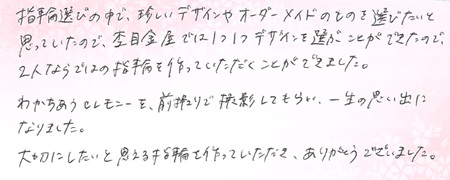 指輪選びの中で、珍しいデザインやオーダーメイドのものを選びたいと
思っていたので、杢目金屋では1つ1つデザインを選ぶことができたので、
2人ならではの指輪を作っていただくことができました。
わかちあうセレモニーを、前撮りで撮影してもらい、一生の思い出に
なりました。
大切にしたいと思える指輪を作っていただき、ありがとうございました。